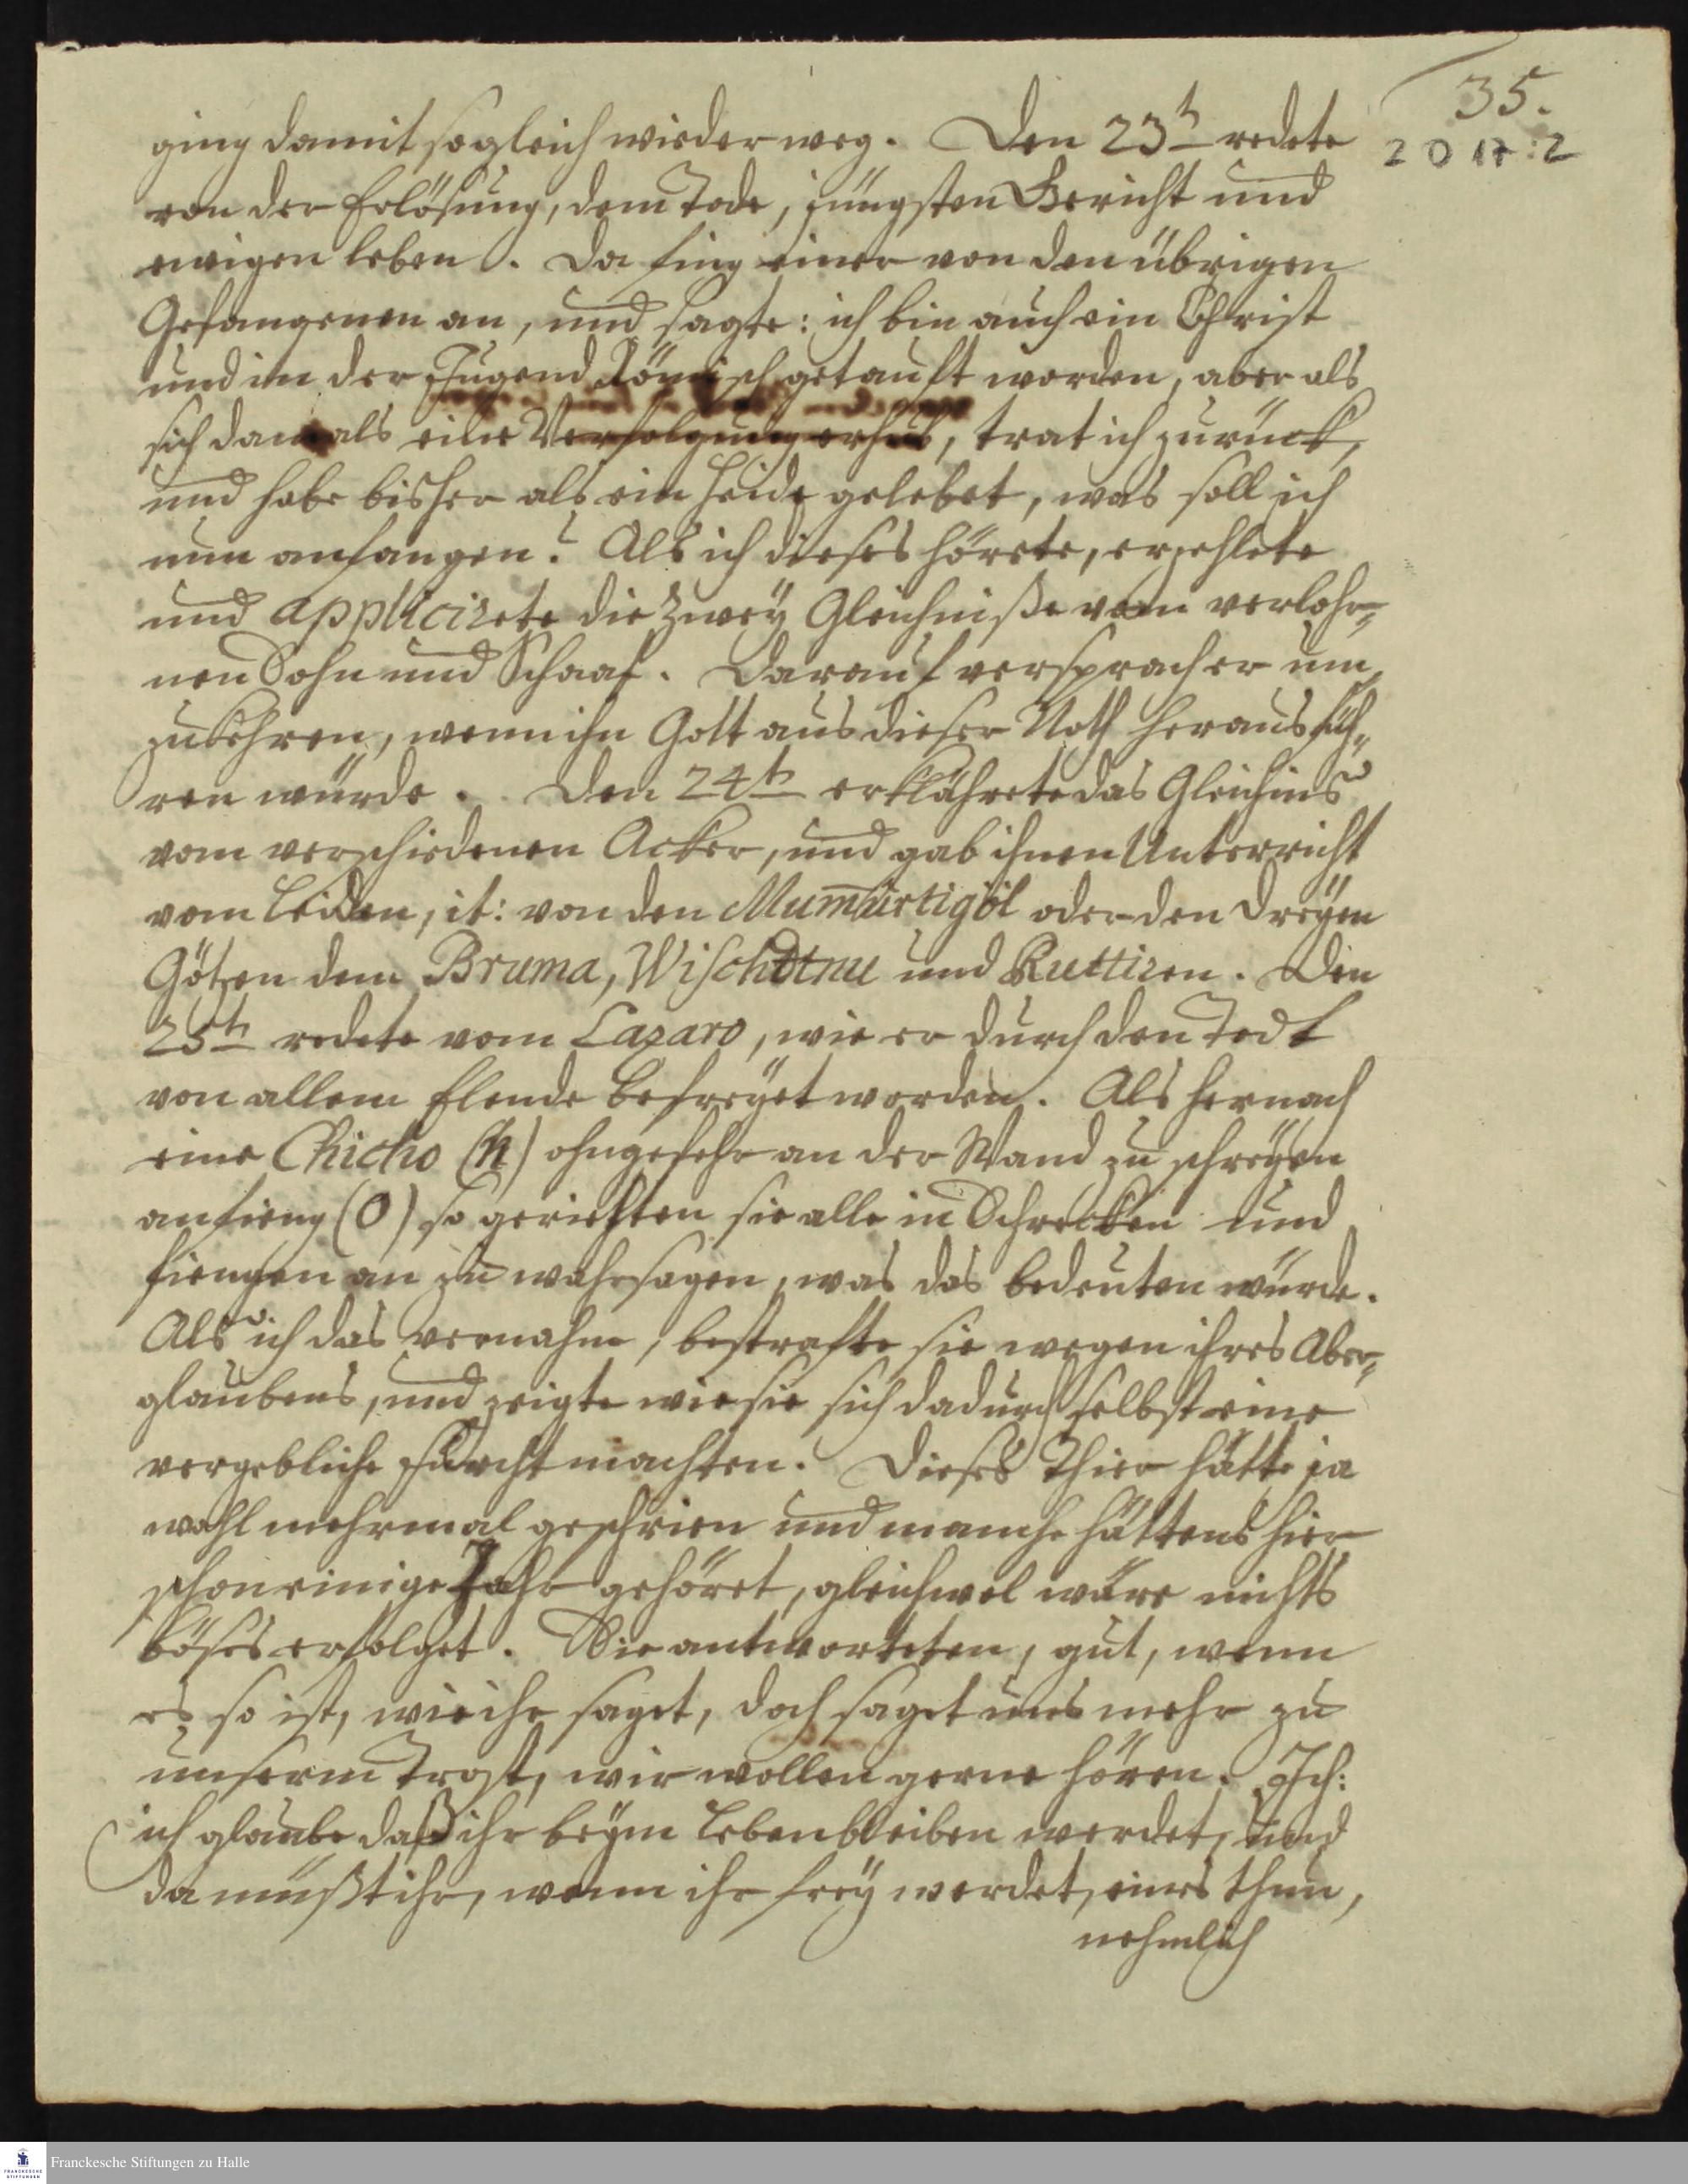 35.
2 0 17:2
ging damit sogleich wieder weg. Den 23t redete
von der Erlösung, dem Tode, jüngsten Gericht und
ewigen Leben. Da fing einer von den übrigen
Gefangenen an, und sagte: ich bin auch ein Christ
und in der Jugend Römisch getauft worden, aber als
sich damals eine Verfolgung erhub, trat ich zurück,
und habe bisher als ein Heide gelebet, was soll ich
nun anfangen? Als ich dieses hörete, erzehlete
und applicirete die zwey Gleichniße vom verlohr-
nen Sohn und Schaaf. Darauf versprach er um
zukehren, wenn ihn Gott aus dieser Noth herausfüh-
ren würde. Den 24t erklährete das Gleichnis
vom verschiedenen Acker, und gab ihnen Unterricht
vom Leiden, it: von den Mum̄urtigöl oder den dreyen
Götzen dem Bruma, Wischtnu und Ruttiren. Den
25t redete vom Lazaro, wie er durch den Todt
von allem Elende befreyet worden. Als hernach
eine Chicho (n) ohngefehr an der Wand zu schreyen
anfieng (O) so geriethen sie alle in Schrecken und
fiengen an zu wahrsagen, was das bedeuten würde.
Als ich das vernahm, bestrafte sie wegen ihres Aber-
glaubens, und zeigte wie sie sich dadurch selbst eine
vergebliche Furcht machten. Dieses Thier hätte ja
wohl mehrmal geschrien und manche hättens hier
schon einige Jahr gehöret, gleichwol wäre nichts
böses erfolget. Sie antworteten, gut, wenn
es so ist, wie ihr saget, doch saget uns mehr zu
unserm Trost, wir wollen gerne hören. Ich:
ich glaube daß ihr beym Leben bleiben werdet, und
da müßt ihr, wenn ihr frey werdet, eines thun,
nehmlich
Franckesche Stiftungen zu Halle
FRANCKESCHE
STIFTUNGEN